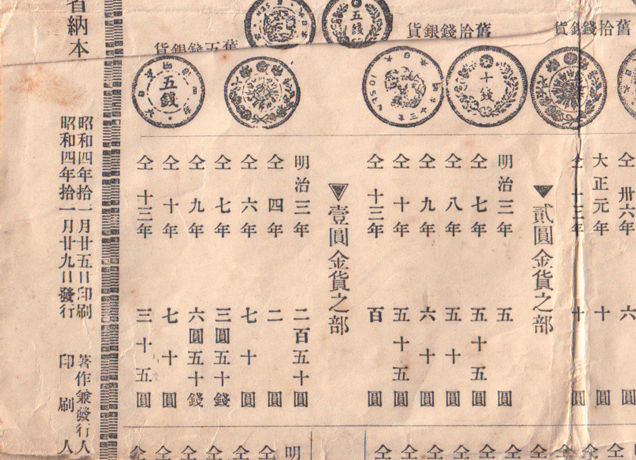 舊拾錢銀貨
舊拾錢銀貨
舊五錢銀貨
五錢
十錢
五錢
仝 卅六年 六圓
大正元年 十圓
仝 十三年 十圓
▼貳圓金貨之部
明治三年 五圓
仝 七年 五十五圓
仝 八年 五十圓
仝 九年 六十圓
仝 十年 五十五圓
仝 十三年 百圓
▼壹圓金貨之部
明治三年 二百五十圓
仝 四年 二圓
仝 六年 七十圓
仝 七年 三圓五十錢
仝 九年 六圓五十錢
仝 十年 七十圓
仝 十三年 三十五圓
仝 仝 仝 仝 仝 仝 仝 仝 仝 仝
明 仝 仝 仝 仝 仝 仝
省納本
昭和四年拾一月廿五日印刷 著作兼發行人
昭和四年拾一月廿九日發行 印刷人